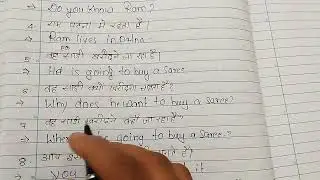 → Do you know Ram?
4. राम पटना में रहता है।
→ Ram lives in Patna
5. वह साड़ी खरीदने जा रहा है।
→ He is going to buy a Saree.
6. वह साड़ी क्यों खरीदना चाहता है?
→ Why does he want to buy a Saree?
7. वह साड़ी खरीदने कहाँ जा रहा है?
→ Where going to buy a Saree?
8. आप हैं?
you it